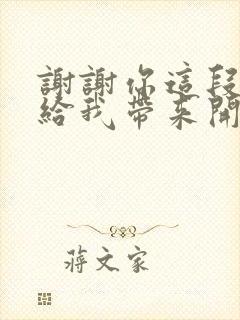 謝謝你這段
給我帶來開
蔣文家